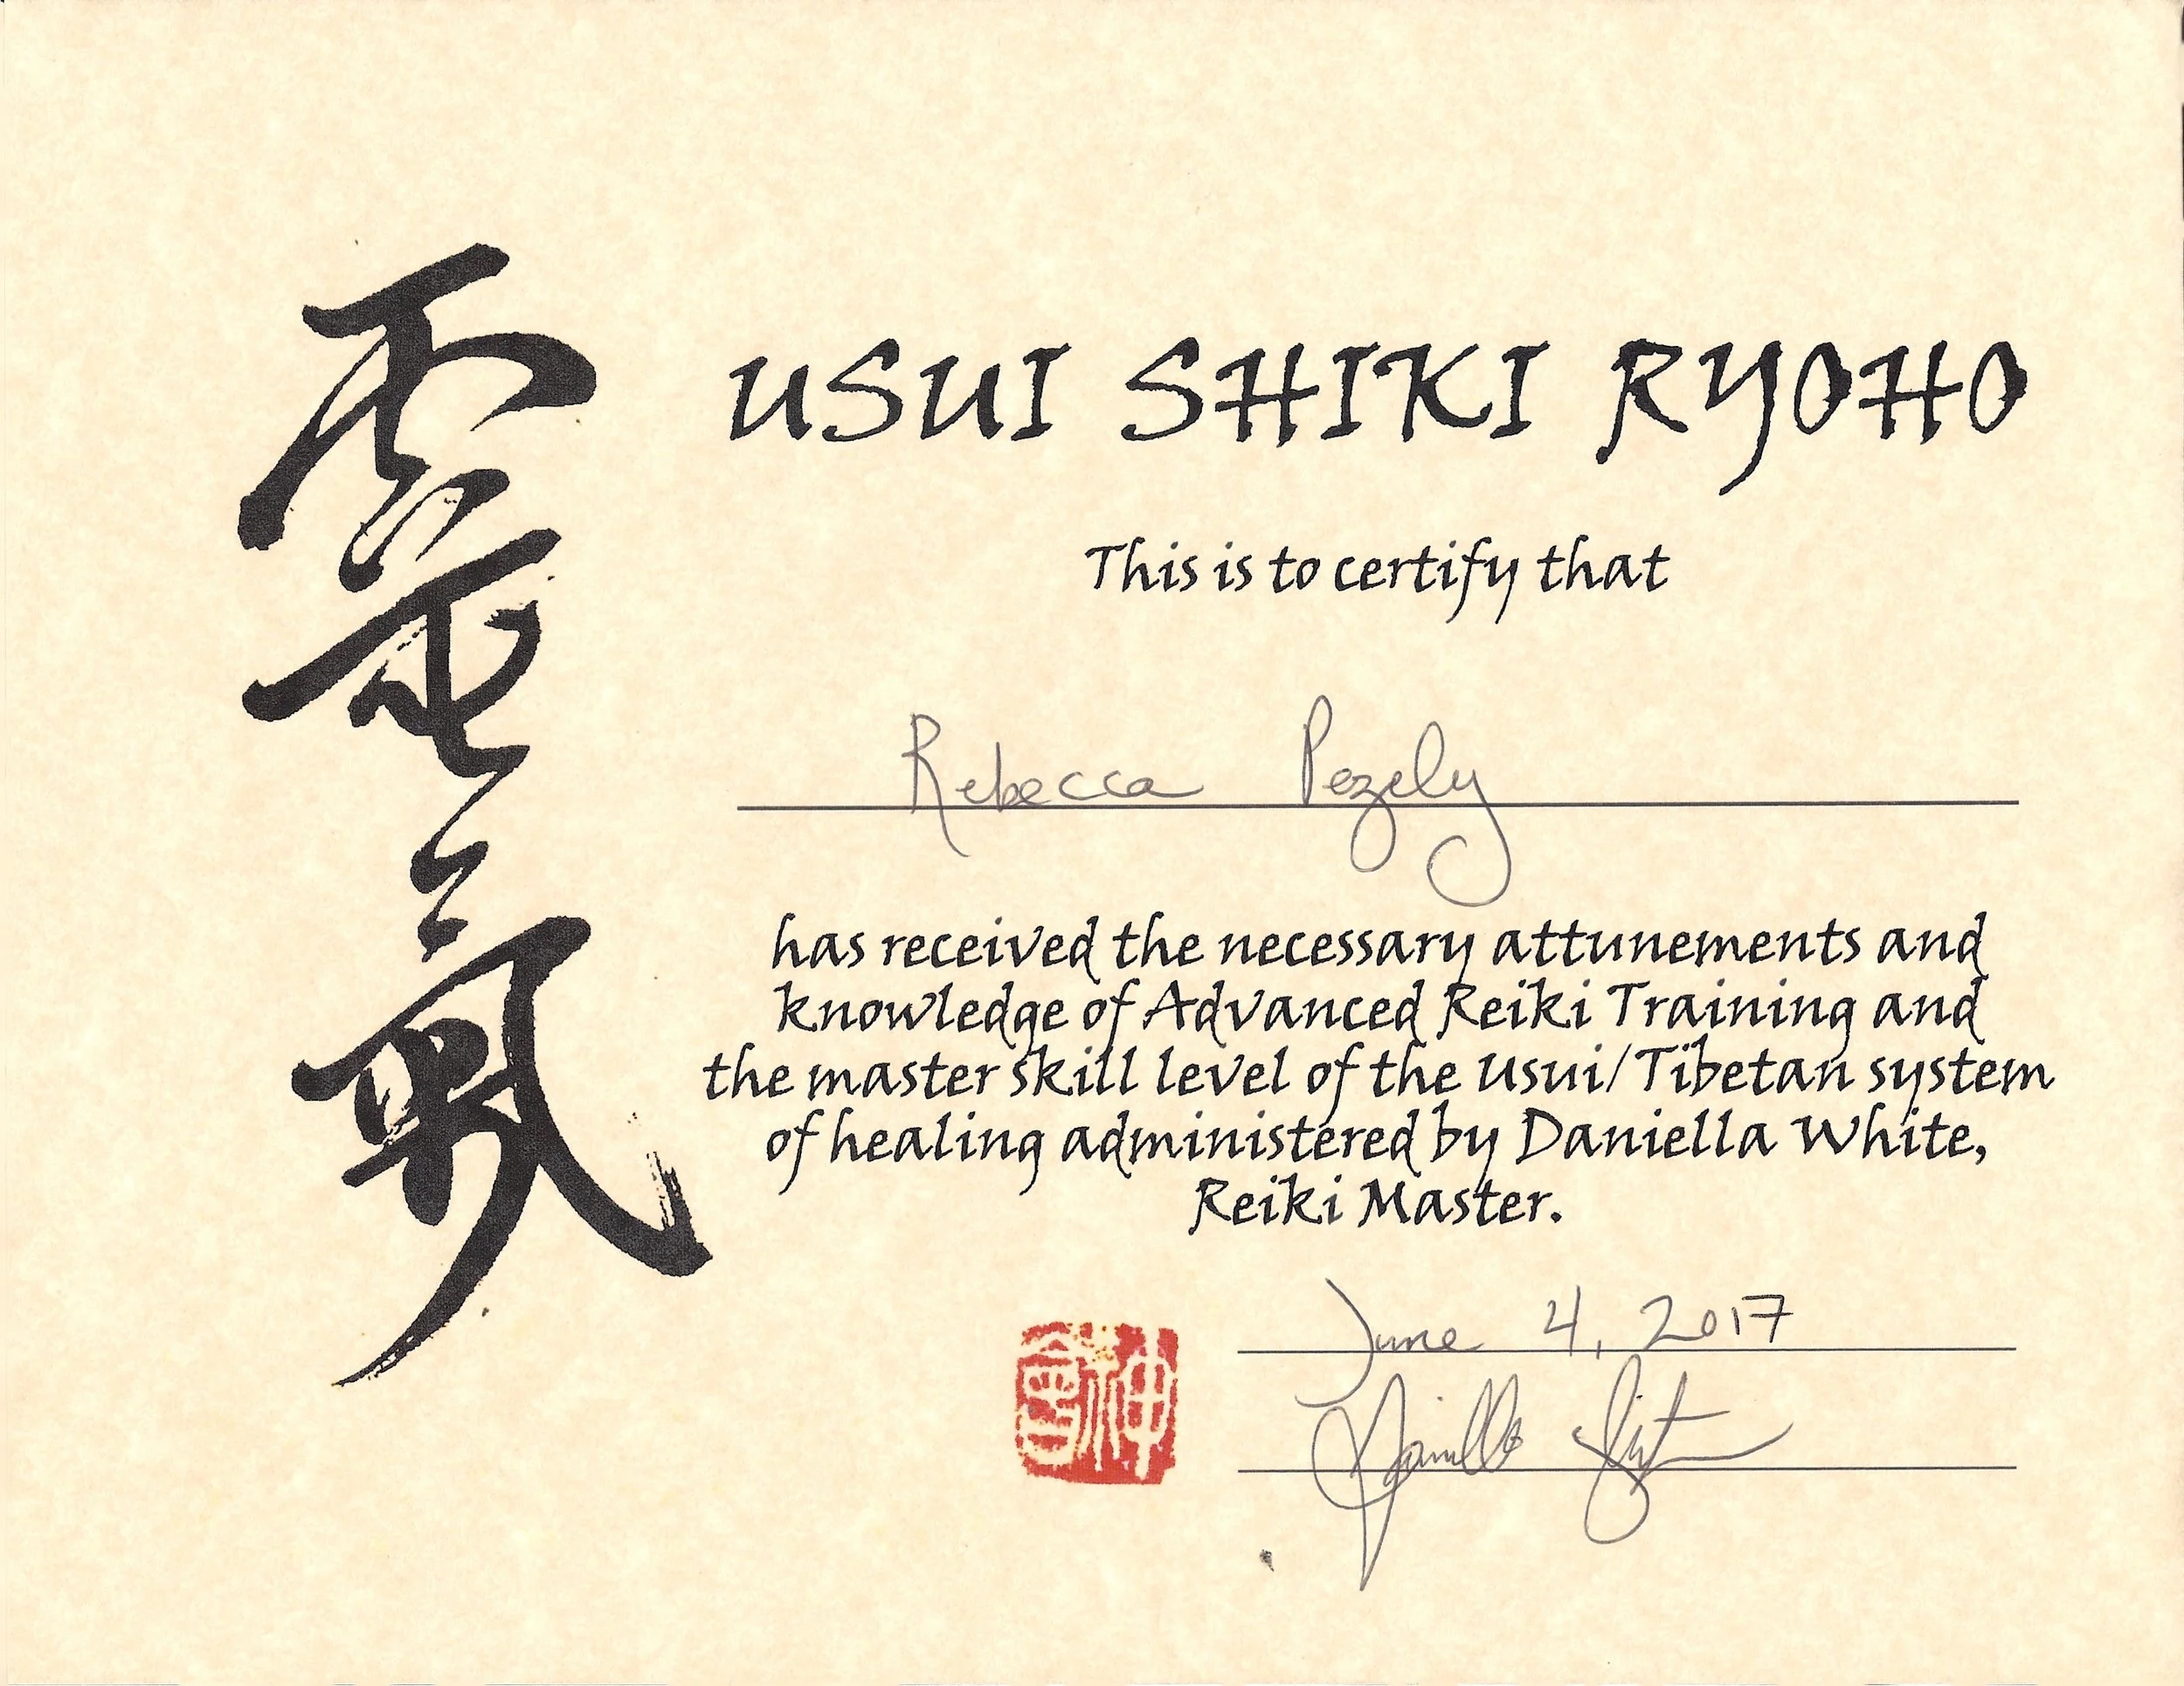 靈氣
USUI SHIKI RYOHO
This is to certify that
Rebecca Pezely
has received the necessary attunements and
knowledge of Advanced Reiki Training and
the master skill level of the Usui/Tibetan system
of healing administered by Daniella White,
Reiki Master.
June 4, 2017